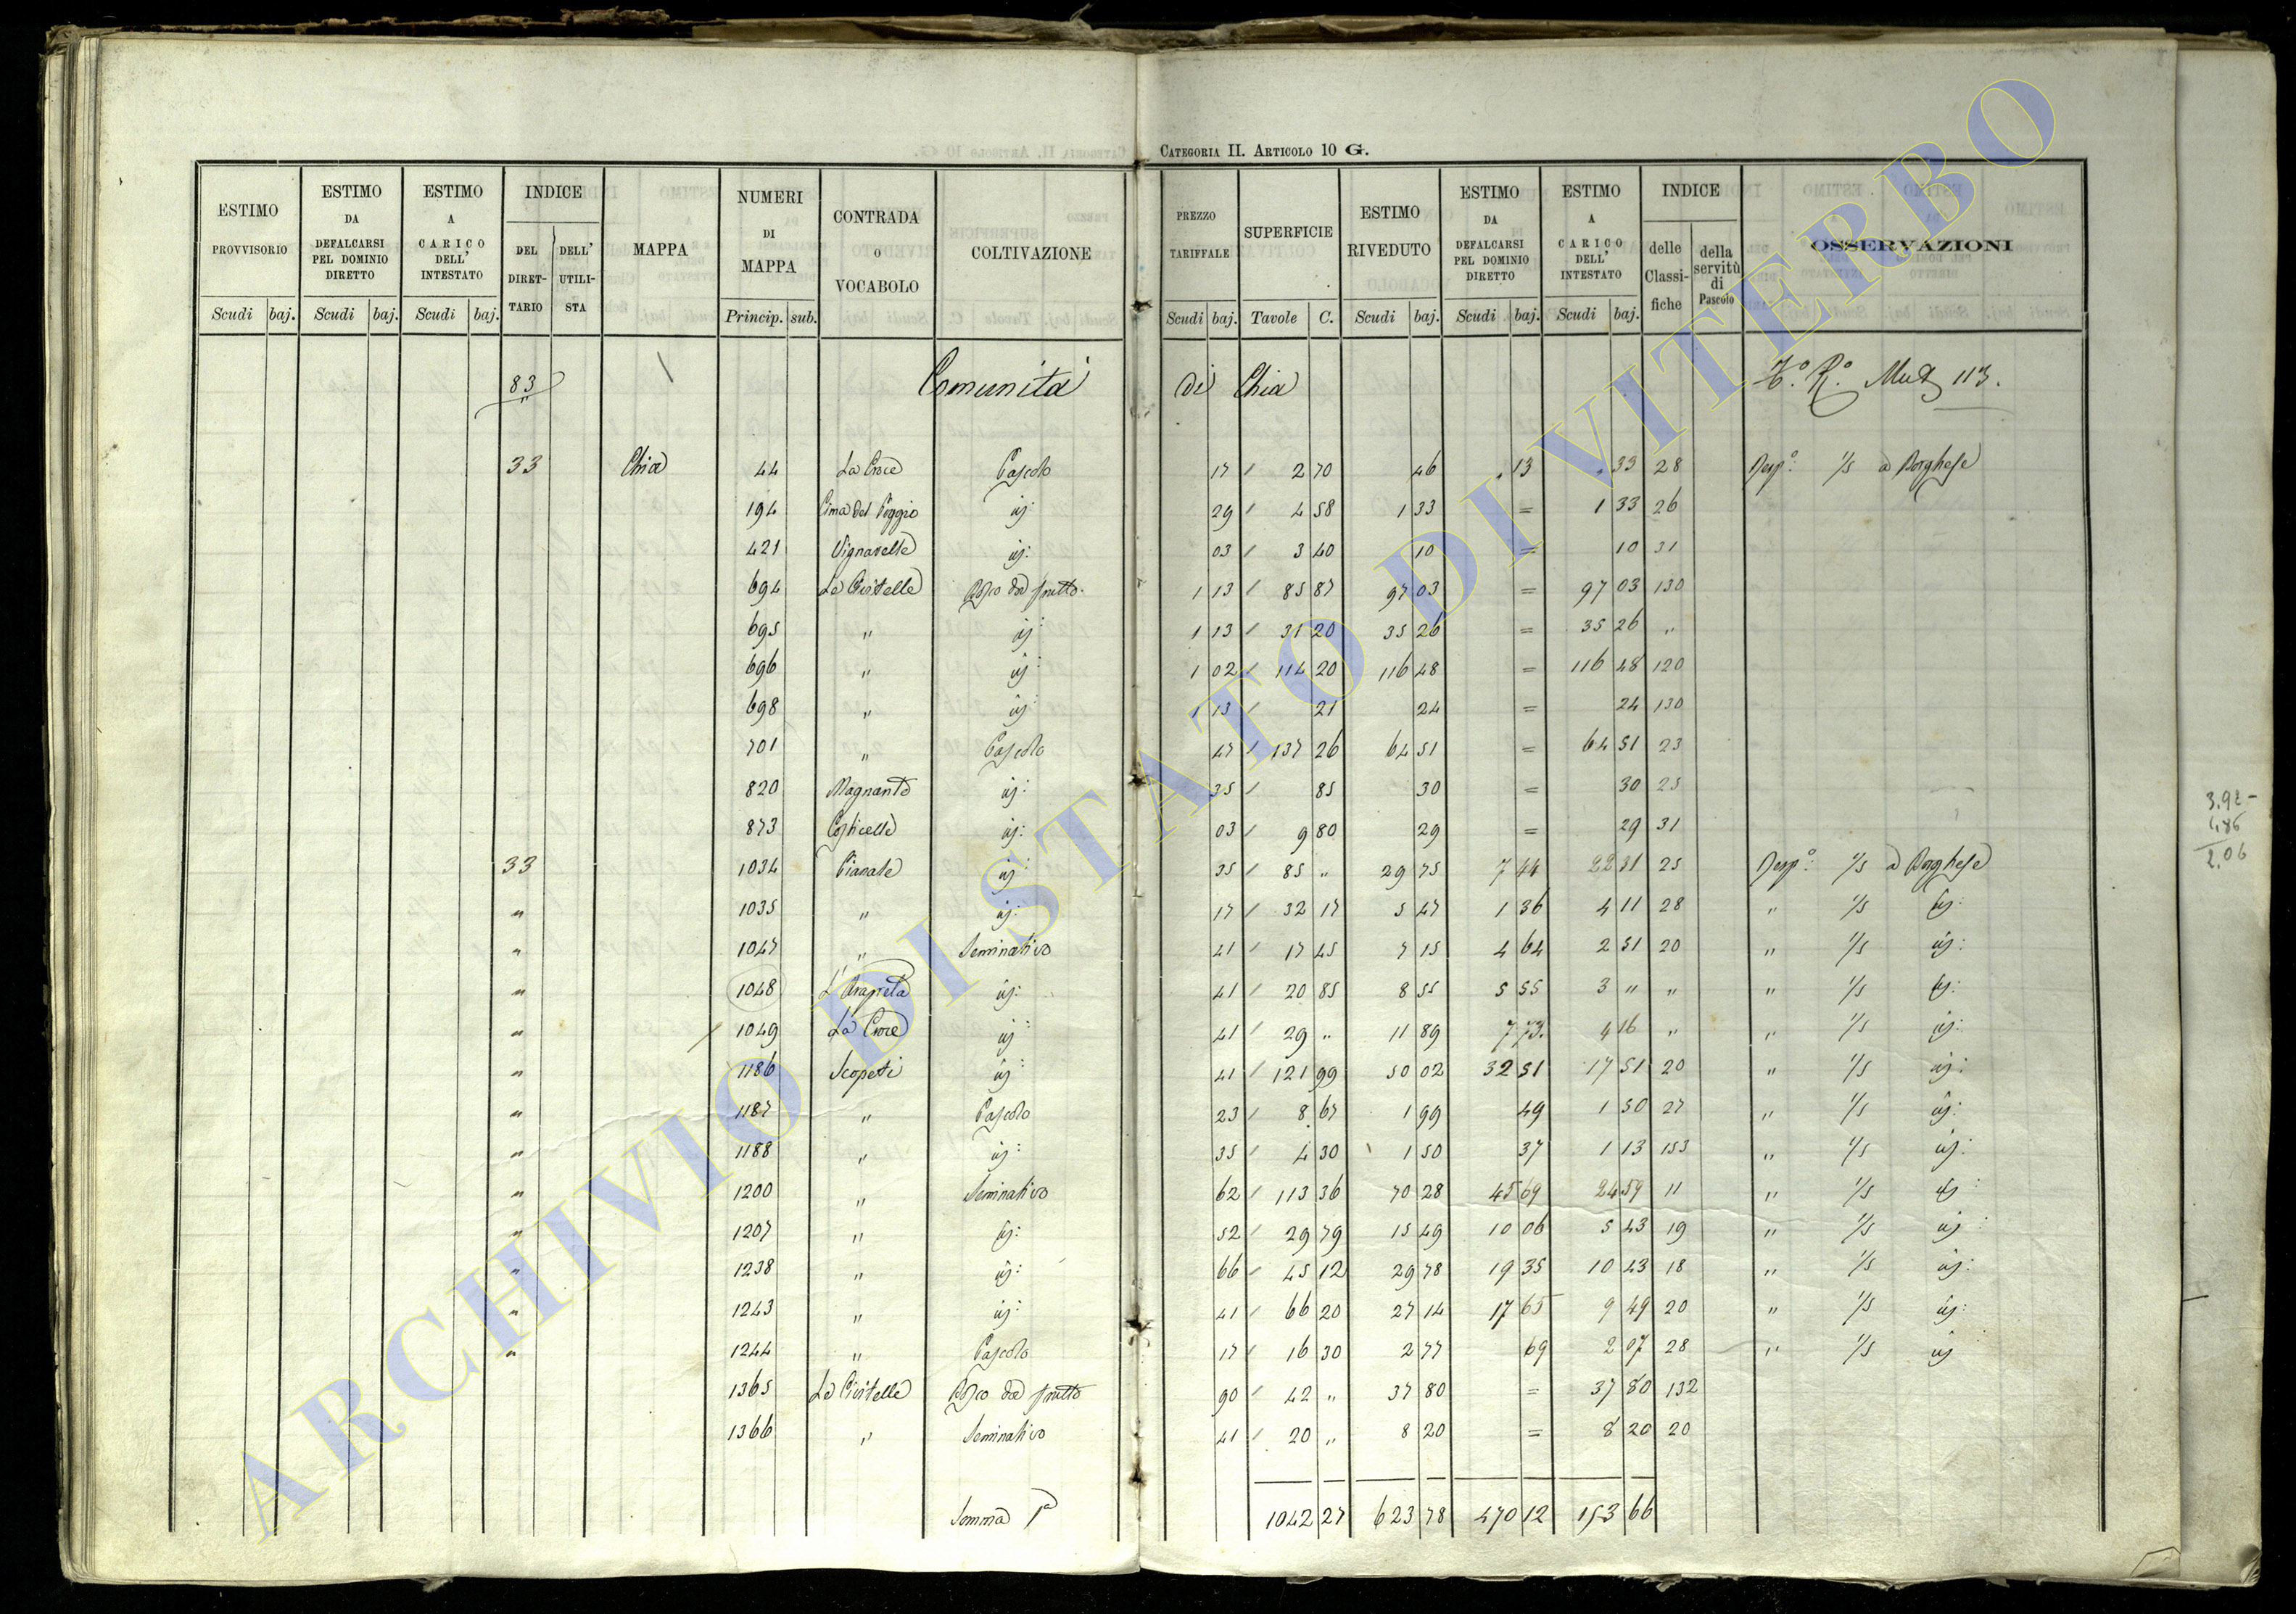 CATEGORIA II. ARTICOLO 10 G.
ESTIMO PROVVISORIO | ESTIMO DA DEFALCARSI PEL DOMINIO DIRETTO | ESTIMO A CARICO DELL' INTESTATO | INDICE | MAPPA | NUMERI DI MAPPA | CONTRADA o VOCABOLO | COLTIVAZIONE | PREZZO TARIFFALE | SUPERFICIE | ESTIMO RIVEDUTO | ESTIMO DA DEFALCARSI PEL DOMINIO DIRETTO | ESTIMO A CARICO DELL' INTESTATO | INDICE | OSSERVAZIONI
DEL DIRETTARIO | DELL' UTILISTA | delle Classifiche | della servitù di Pascolo
Scudi baj. | Scudi baj. | Scudi baj. | Princip. sub. | Scudi baj. | Tavole C. | Scudi baj. | Scudi baj. | Scudi baj.
83 Comunità di Chia 113.
33 Chia 44 La Croce Pascolo 17 2 70 46 13 33 28 1/5 a Borghese
194 Cima del Poggio id: 29 4 58 1 33 = 1 33 26
421 Vignarelle id: 03 3 40 10 = 10 31
694 Le Civitelle Bosco da frutto 1 13 85 87 97 03 = 97 03 130
695 " id: 1 13 31 20 35 26 = 35 26 "
696 " id: 1 02 114 20 116 48 = 116 48 120
698 " id: 1 13 21 24 = 24 130
701 " Pascolo 47 137 26 64 51 = 64 51 23
820 Magnante id: 35 85 30 = 30 25
873 id: 03 9 80 29 = 29 31
33 1034 Pianale id: 35 85 " 29 75 7 44 22 31 25 1/5 a Borghese
" 1035 " id: 17 32 17 5 47 1 36 4 11 28 " 1/5 id:
" 1047 " Seminativo 41 17 45 7 15 4 64 2 51 20 " 1/5 id:
" 1048 id: 41 20 85 8 55 5 55 3 " " " 1/5 id:
" 1049 La Croce id: 41 29 " 11 89 7 73 4 16 " " 1/5 id:
" 1186 Scopeti id: 41 121 99 50 02 32 51 17 51 20 " 1/5 id:
" 1187 " Pascolo 23 8 67 1 99 49 1 50 27 " 1/5 id:
" 1188 " id: 35 4 30 1 50 37 1 13 153 " 1/5 id:
" 1200 " Seminativo 62 113 36 70 28 45 69 24 59 11 " 1/5 id:
" 1207 " id: 52 29 79 15 49 10 06 5 43 19 " 1/5 id:
" 1238 " id: 66 45 12 29 78 19 35 10 43 18 " 1/5 id:
" 1243 " id: 41 66 20 27 14 17 65 9 49 20 " 1/5 id:
" 1244 " Pascolo 17 16 30 2 77 69 2 07 28 " 1/5 id
1365 Le Civitelle Bosco da frutto 90 42 " 37 80 = 37 80 132
1366 " Seminativo 41 20 " 8 20 = 8 20 20
Somma 1ª 1042 27 623 78 470 12 153 66
2.06
ARCHIVIO DI STATO DI VITERBO